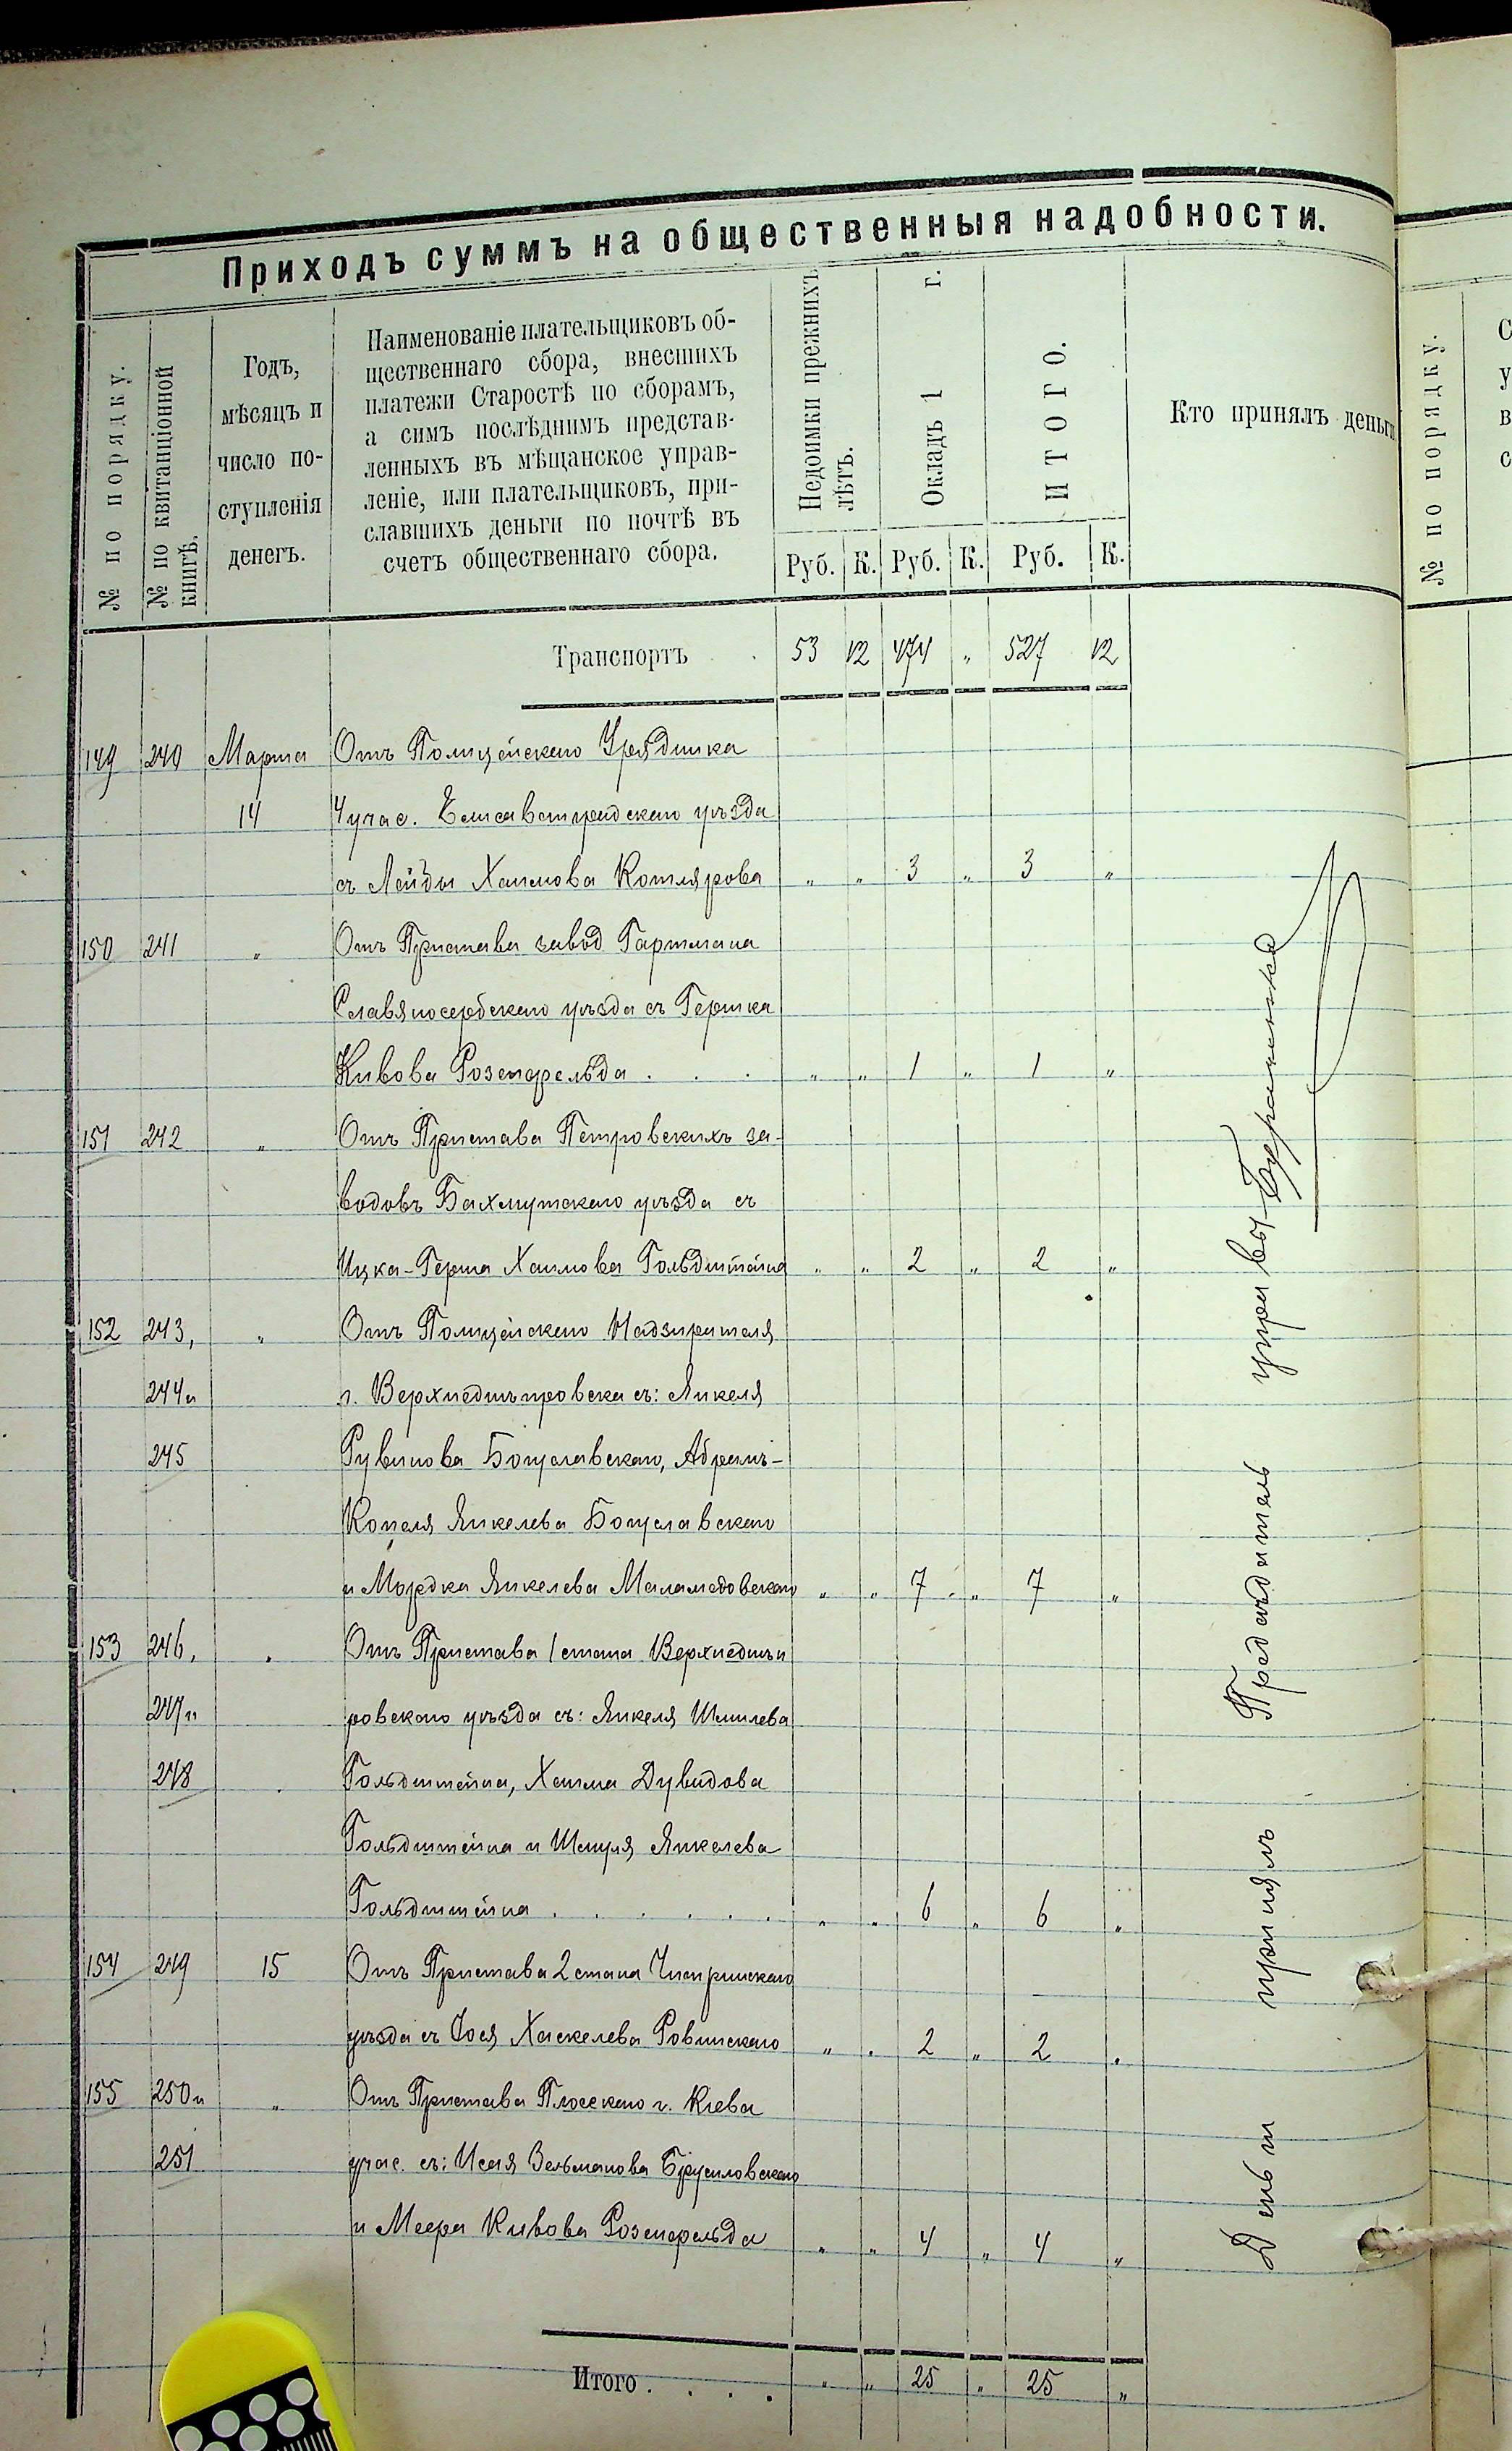 Приходъ суммъ на общественныя надобности.
№ по порядку.
№ по квитанціонной книгѣ.
Годъ,
мѣсяцъ и
число по-
ступленія
денегъ.
Наименованіе плательщиковъ об-
щественнаго сбора, внесшихъ
платежи Старостѣ по сборамъ,
а симъ послѣднимъ представ-
ленныхъ въ мѣщанское управ-
леніе, или плательщиковъ, при-
славшихъ деньги по почтѣ въ
счетъ общественнаго сбора.
Недоимки прежнихъ лѣтъ.
Окладъ 1 г.
ИТОГО.
Кто принялъ деньги
Руб. К. Руб. К. Руб. К.
Транспортъ . 53 12 474 „ 527 12
149 240 Марта Отъ Полицейскаго Урядника
14 4 учас. Елисаветградскаго уѣзда
съ Лейбы Хаимова Котлярова „ „ 3 „ 3 „
150 241 „ Отъ Пристава завод Гартмана
Славяносербскаго уѣзда съ Гершка
Кивова Розенфельда . . . „ „ 1 „ 1 „
151 242 „ Отъ Пристава Петровскихъ за-
водовъ Бахмутскаго уѣзда съ
Ицка-Герша Хаимова Гольдштейна „ „ 2 „ 2 „
152 243, „ Отъ Полицейскаго Надзирателя
244 и г. Верхнеднѣпровска съ: Янкеля
245 Рувинова Богуславскаго, Абрамъ-
Копеля Янкелева Богуславскаго
и Мордка Янкелева Маламедовскаго „ „ 7 „ 7 „
153 246, „ Отъ Пристава 1 стана Верхнеднѣп
247 и ровскаго уѣзда съ: Янкеля Шмилева
248 Гольдштейна, Хаима Дувидова
Гольдштейна и Шмуля Янкелева
Гольдштейна . . . . . . „ „ 6 „ 6 „
154 249 15 Отъ Пристава 2 стана Чигринскаго
уѣзда съ Іося Хаскелева Ровинскаго „ „ 2 „ 2 „
155 250 и „ Отъ Пристава Плоскаго г. Кіева
251 учас. съ: Исая Зельманова Брусиловскаго
и Меера Кивова Розенфельда „ „ 4 „ 4 „
Итого . . . . „ „ 25 „ 25 „
Деньги принялъ Предсѣдатель управы
№ по порядку.